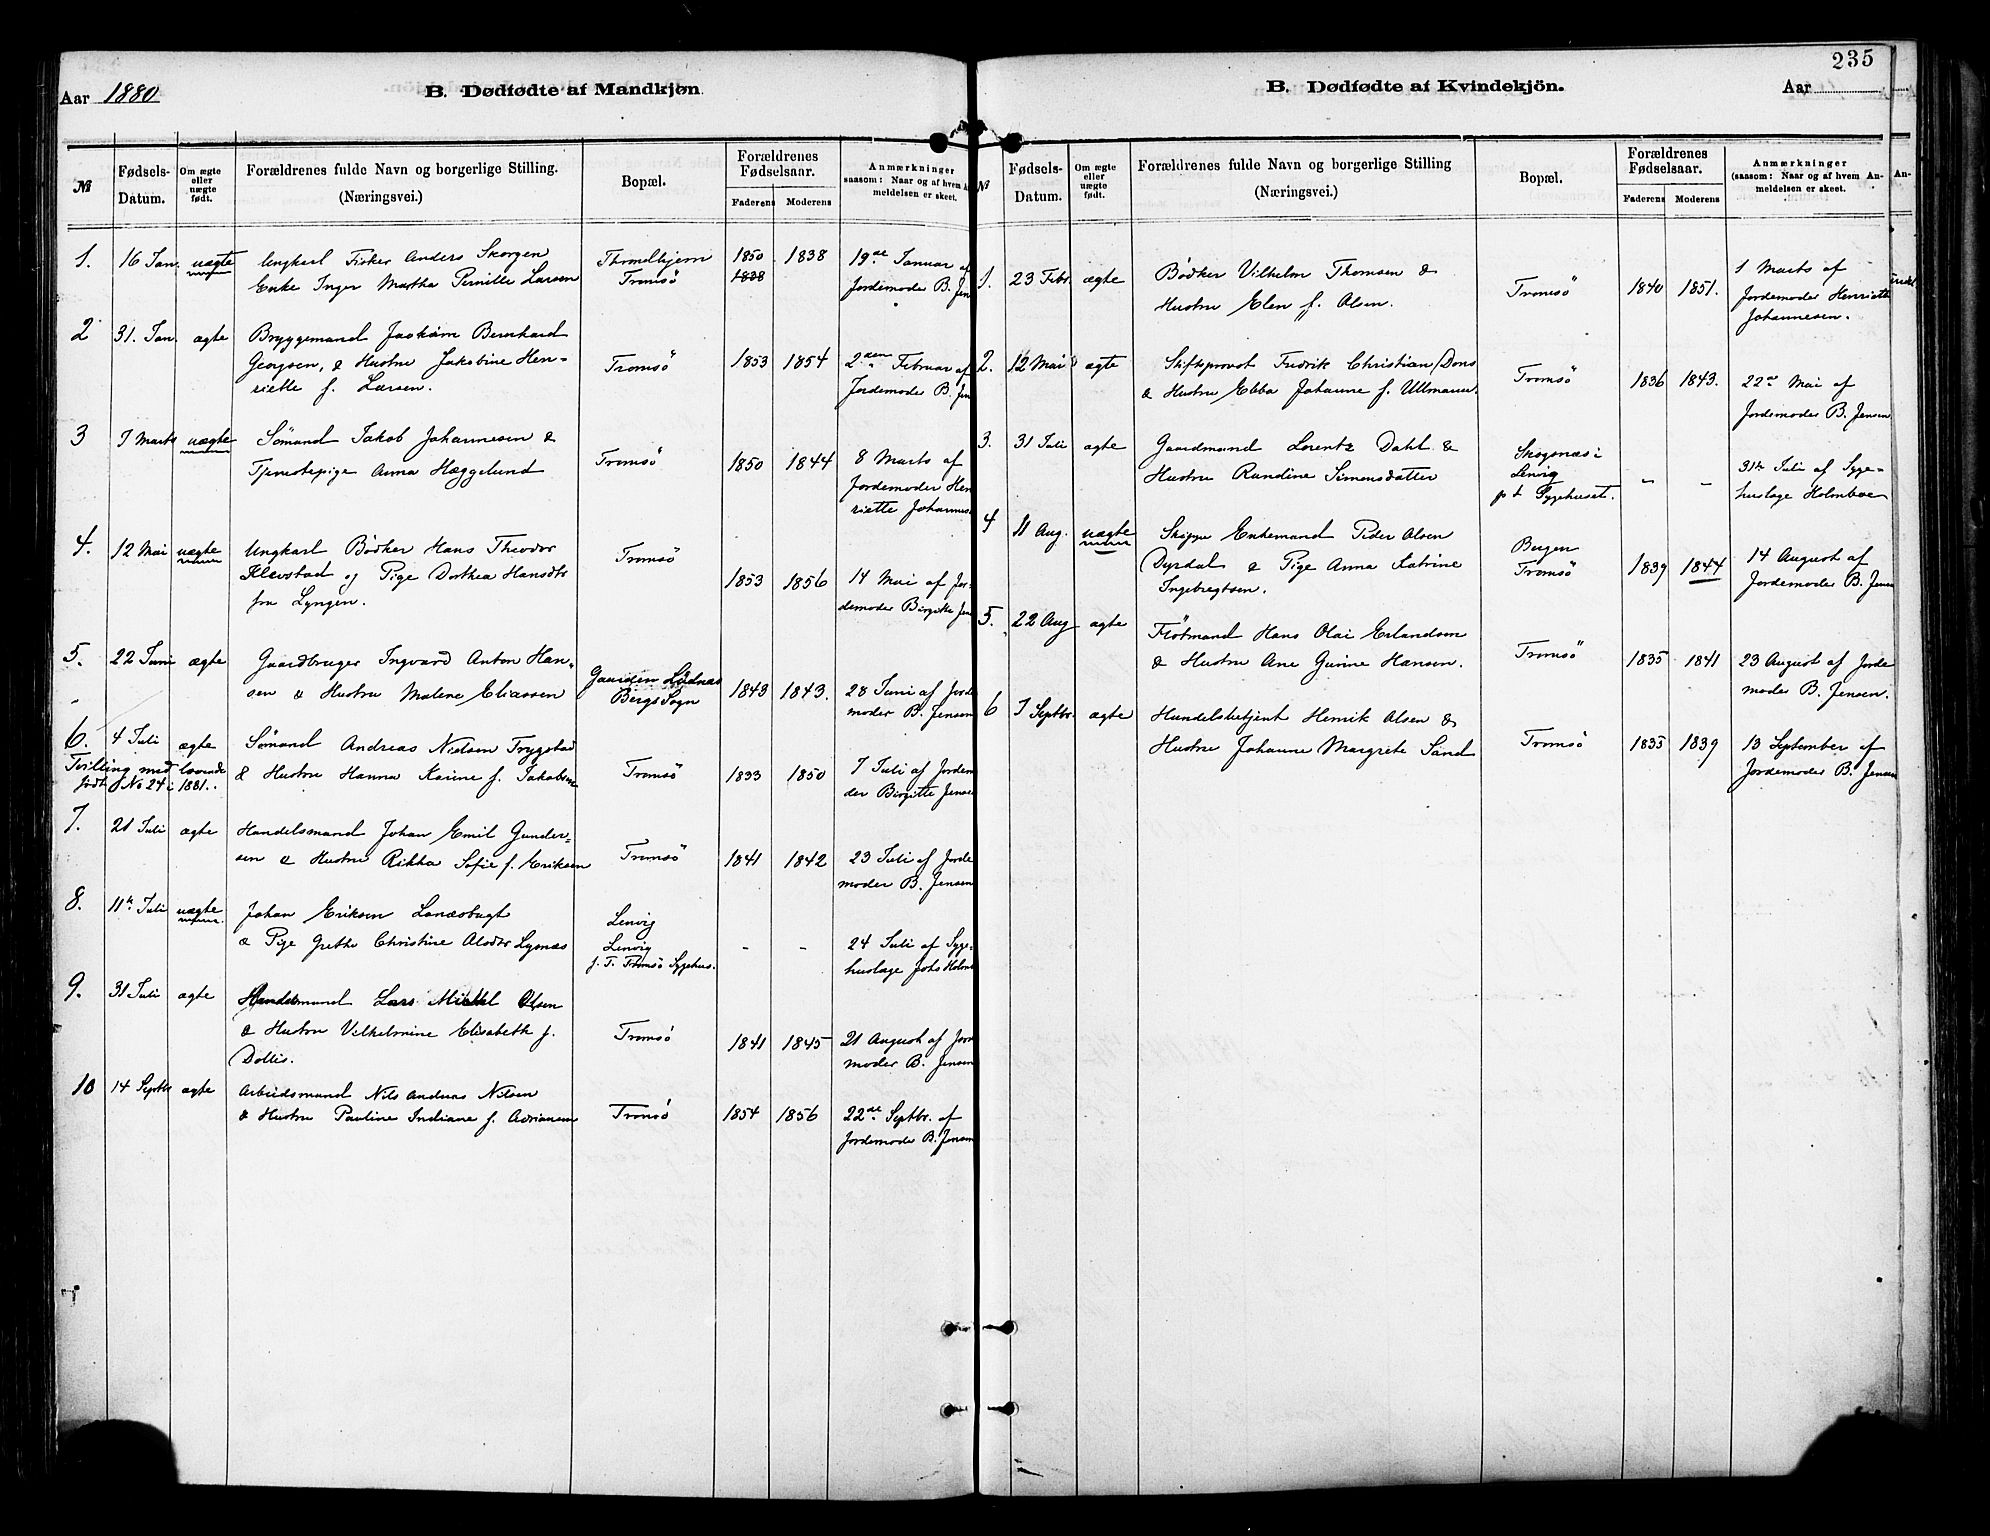 235
Aar 1880
B. Dødfødte af Mandkjön
№
Fødsels-Datum.
Om ægte eller uægte født.
Forældrenes fulde Navn og borgerlige Stilling.
(Næringsvei.)
Bopæl.
Forældrenes Fødselsaar.
Faderens
Moderens
Anmærkninger
saasom: Naar og af hvem An-
meldelsen er skeet.
1. 16 Jan. uægte Ungkarl Fisker Anders Skorgen Throndhjem 1850 1838 19de Januar af
Enke Inger Martha Pernille Larsen Tromsö 1838 Jordemoder B. Jen
2 31. Jan. ægte Bryggemand Joakim Bernhard
Georgsen, & Hustru Jakobine Hen- Tromsö 1853 1854 2den Februar af
riette f. Larsen. Jordemoder B. Jen
3 7 Marts uægte Sømand Jakob Johannesen &
Tjenestepige Anna Hæggelund Tromsö 1850 1844 8 Marts af
Jordemoder Hen
riette Johannes.
4. 12 Mai uægte Ungkarl Bødker Hans Theodor Tromsö
Klevstad og Pige Dorthea Hansdtr 1853 1856 14 Mai af Jor-
fra Lyngen. demoder Birgitte Jen
5. 22 Juni ægte Gaardbruger Ingvard Anton Han-
sen & Hustru Malene Eliassen Gaarden Lüdnæs
Bergs Sogn 1843 1843. 28 Juni af Jorde
moder B. Jensen
6. 4 Juli ægte Sømand Andreas Nielsen Trygstad
Tvilling med levende & Hustru Hanna Kaiine f. Jakobsen Tromsö 1833 1850 7 Juli af Jordem
født No 24 i 1881. der Birgitte Jensen
7. 21 Juli ægte Handelsmand Johan Emil Gunder-
sen & Hustru Rikka Sofie f. Eriksen Tromsö 1841 1842 23 Juli af Jorde
moder B. Jensen
8. 11te Juli uægte Johan Eriksen Lanæsbugt Lenvig
& Pige Grethe Christine Alsdtr Lysnæs Lenvig - - 24 Juli af Syge-
f. T. Tromsö Sygehus. huslæge Johs Holmb
9. 31 Juli ægte Handelsmand Lars Mikkel Olsen
& Hustru Vilhelmine Elisabeth f. Tromsö 1841 1845 21 August af Jord
Dollis. moder B. Jensen
10 14 Septbr ægte Arbeidsmand Nils Andreas Nilsen
& Hustru Pauline Indiane f. Adriansen Tromsö 1854 1856 22de Septbr. af
Jordemoder B. Jensen
B. Dødfødte af Kvindekjön.
Aar
№
Fødsels-Datum.
Om ægte eller uægte født.
Forældrenes fulde Navn og borgerlige Stilling
(Næringsvei.)
Bopæl.
Forældrenes Fødselsaar.
Faderens
Moderens
Anmærkninger
(saasom: Naar og af hvem An-
meldelsen er skeet.
An-
1. 23 Febr. ægte Bødker Vilhelm Thomsen & 1 Marts af
Hustru Elen f. Olsen. Tromsö 1840 1851. Jordemoder Henriette
Johannesen.
2. 12 Mai ægte Stiftsprovst Fredrik Christian Dons Tromsö
& Hustru Ebba Johanne f. Ullmann. 1836 1843. 22de Mai af
Jordemoder B. Jensen
3. 31 Juli ægte Gaardmand Lorentz Dahl & Skognæs i
Hustru Randine Simonsdatter Lenvig - - 31te Juli af Syge-
p t Sygehuset. huslæge Holmboe
4 11 Aug. uægte Skipper Enkemand Peder Olsen Bergen
Dyrdal & Pige Anna Katrine Tromsö 1839 1844 14 August af
Ingebregtsen. Jordemoder B. Jensen
5. 22 Aug ægte Fløtmand Hans Olai Erlandsen
& Hustru Ane Gurine Hansen. Tromsö 1835 1841 23 August af Jorde
moder B. Jensen.
6 7 Septbr. ægte Handelsbetjent Henrik Olsen &
Hustru Johanne Margrete Sand Tromsö 1835 1839 13 September af
Jordemoder B. Jensen